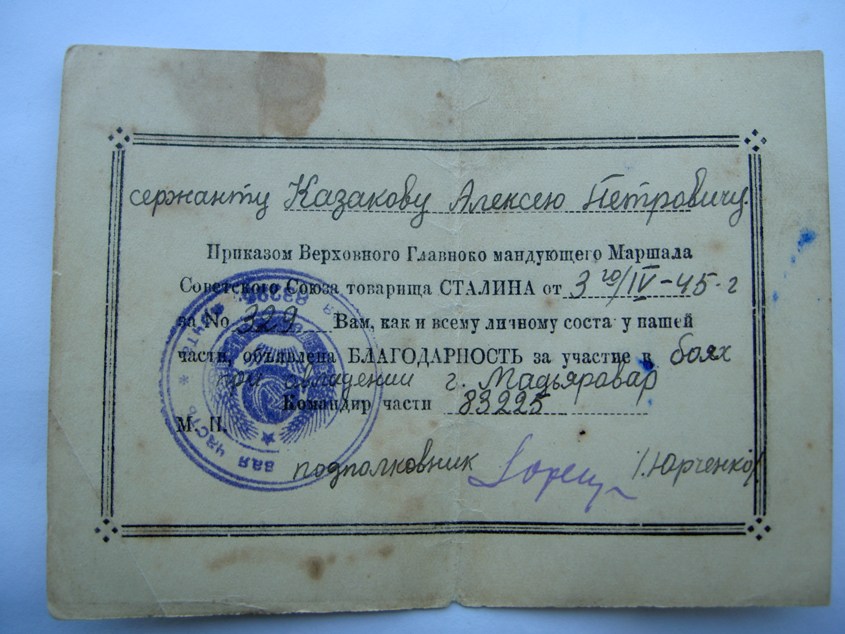 сержанту Казакову Алексею Петровичу.
Приказом Верховного Главноко мандующего Маршала
Советского Союза товарища СТАЛИНА от 3го/IV-45-г
за No 329 Вам, как и всему личному соста у нашей
части, объявлена БЛАГОДАРНОСТЬ за участие в боях
при овладении г. Мадьяровар
Командир части 83225
М. П.
подполковник /Юрченко/
вая часть * почта